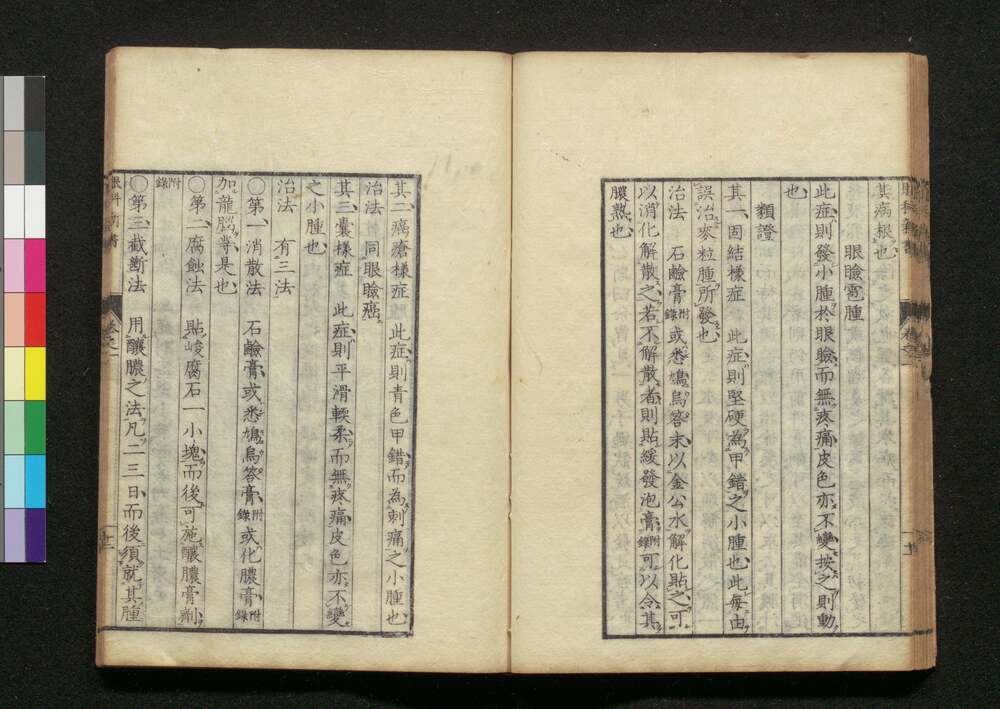 其病根也
眼瞼雹腫
此症則發小腫於眼瞼而無疼痛皮色亦不變按之則動
也
類證
其一固結様症 此症則堅硬為甲錯之小腫也此毎由
誤治麥粒腫所發也
治法 石鹼膏附錄或悉鳩鳥答末以金公水解化貼之可
以消化解散之若不解散者則貼緩發泡膏附錄可以令其
膿熟也
其二瘑瘡様症 此症則青色甲錯而為刺痛之小腫也
治法 同眼瞼癌
其三嚢様症 此症則平滑軟柔而無疼痛皮色亦不變
之小腫也
治法 有三法
○第一消散法 石鹼膏或悉鳩鳥答膏附錄或化膿膏附錄
加龍腦等是也
○第二腐蝕法 貼峻腐石一小塊而後可施釀膿膏劑
附錄
○第三截斷法 用釀膿之法凡二三日而後須就其腫
眼科
卷之一
十二